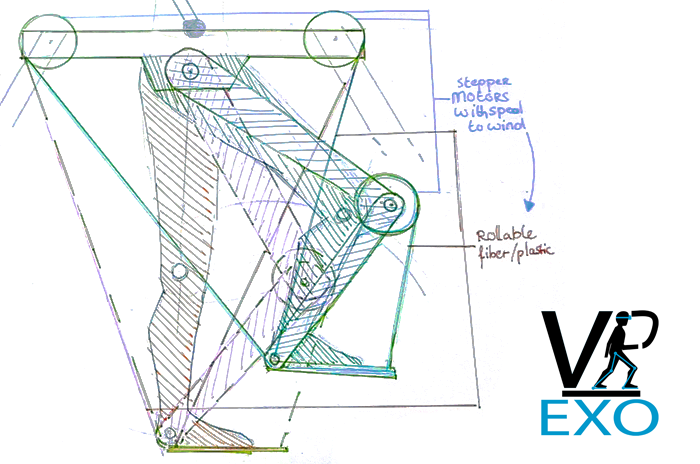 stepper
Motors
with spool
to wind
Rollable
fiber/plastic
VR
EXO